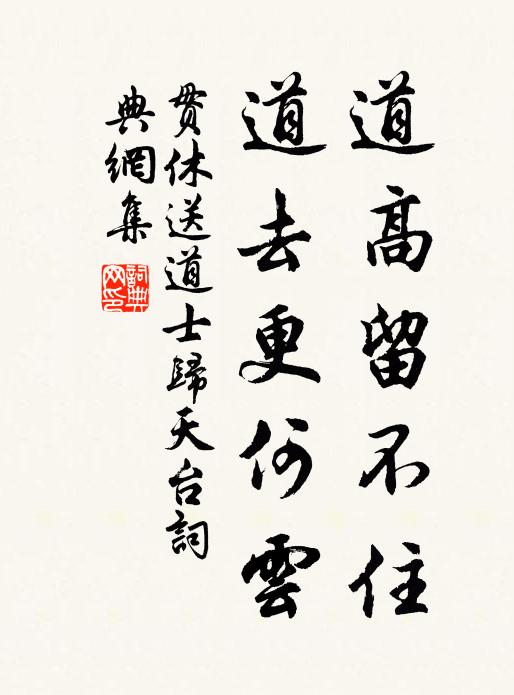 道高留不住
道去更何雲
貫休送道士歸天台詞
典網集
詞典網印